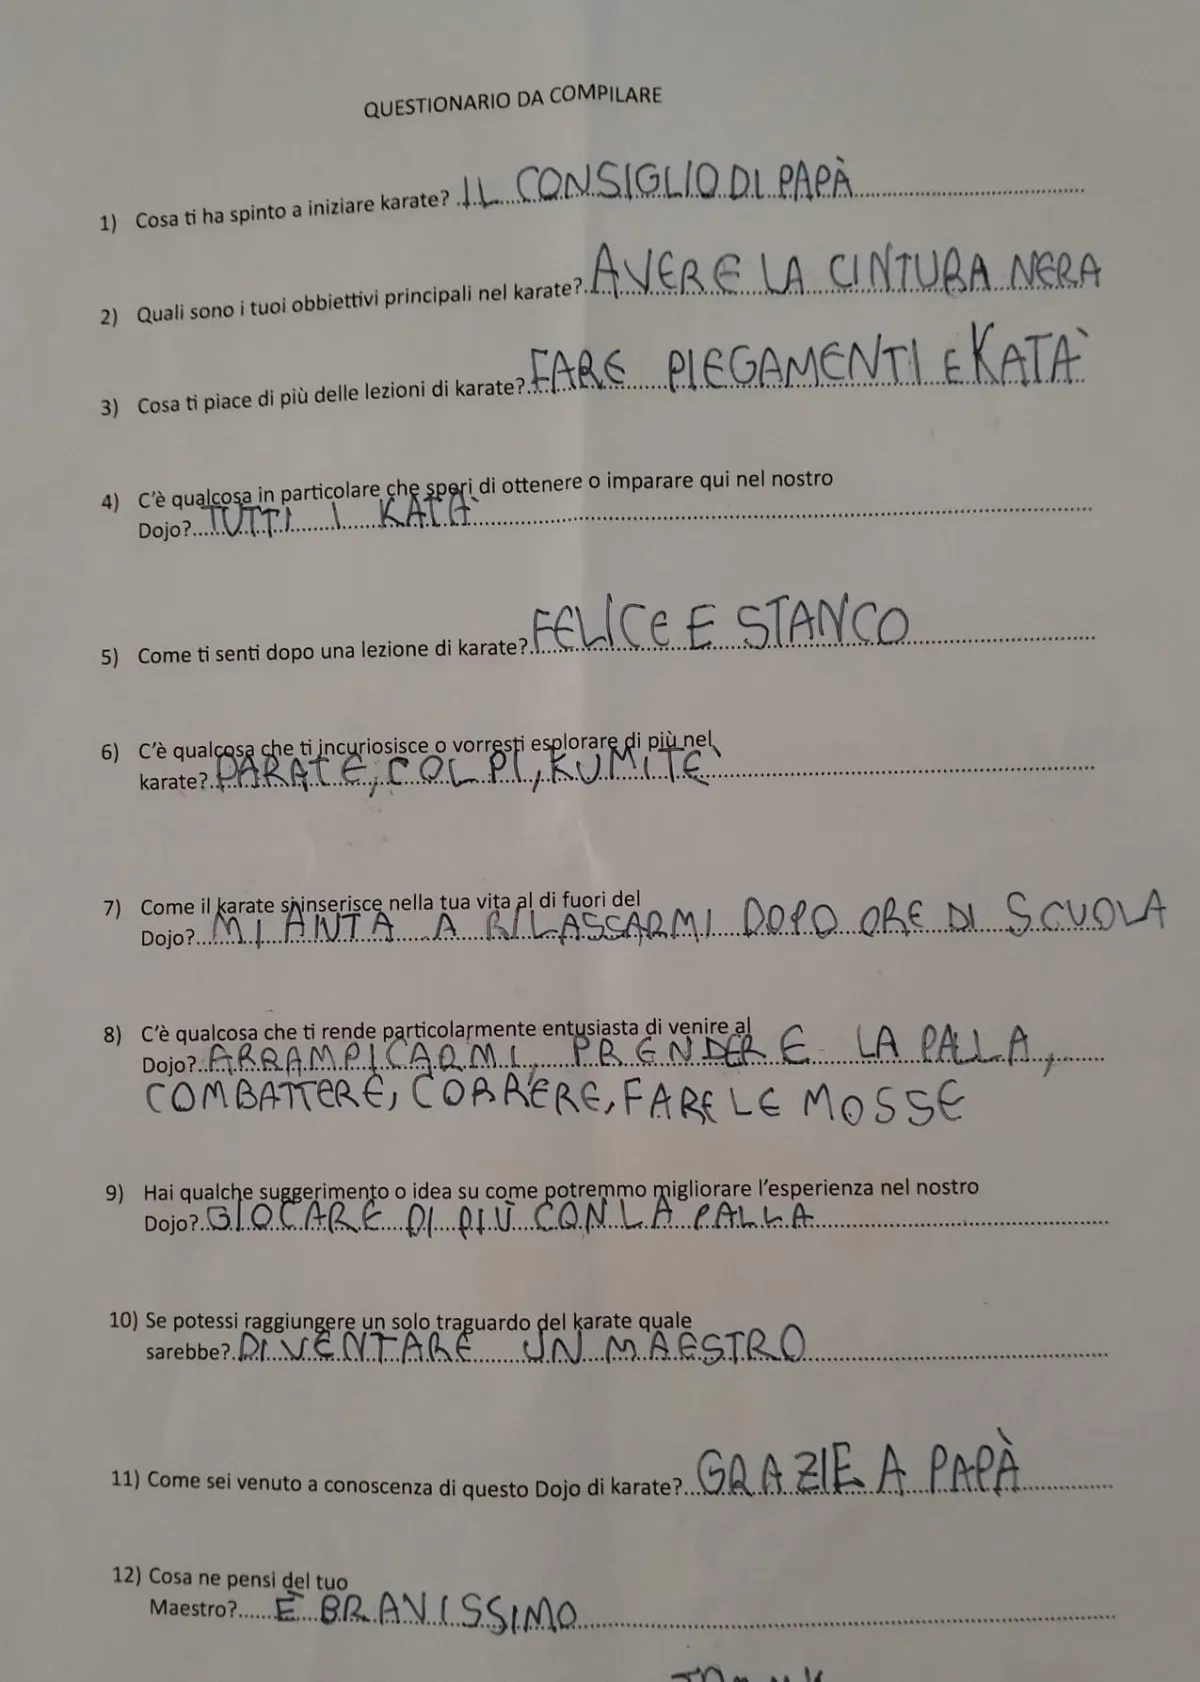 QUESTIONARIO DA COMPILARE
1) Cosa ti ha spinto a iniziare karate? IL CONSIGLIO DI PAPÀ
2) Quali sono i tuoi obbiettivi principali nel karate? AVERE LA CINTURA NERA
3) Cosa ti piace di più delle lezioni di karate? FARE PIEGAMENTI E KATÀ
4) C'è qualcosa in particolare che speri di ottenere o imparare qui nel nostro
Dojo? TUTTI I KATÀ
5) Come ti senti dopo una lezione di karate? FELICE E STANCO
6) C'è qualcosa che ti incuriosisce o vorresti esplorare di più nel
karate? PARATE, COLPI, KUMITÈ
7) Come il karate si inserisce nella tua vita al di fuori del
Dojo? MI ANTA A RILASSARMI DOPO ORE DI SCUOLA
8) C'è qualcosa che ti rende particolarmente entusiasta di venire al
Dojo? ARRAMPICARMI, PRENDERE LA PALLA,
COMBATTERE, CORRERE, FARE LE MOSSE
9) Hai qualche suggerimento o idea su come potremmo migliorare l'esperienza nel nostro
Dojo? GIOCARE DI PIÙ CON LA PALLA
10) Se potessi raggiungere un solo traguardo del karate quale
sarebbe? DIVENTARE UN MAESTRO
11) Come sei venuto a conoscenza di questo Dojo di karate? GRAZIE A PAPÀ
12) Cosa ne pensi del tuo
Maestro? È BRAVISSIMO